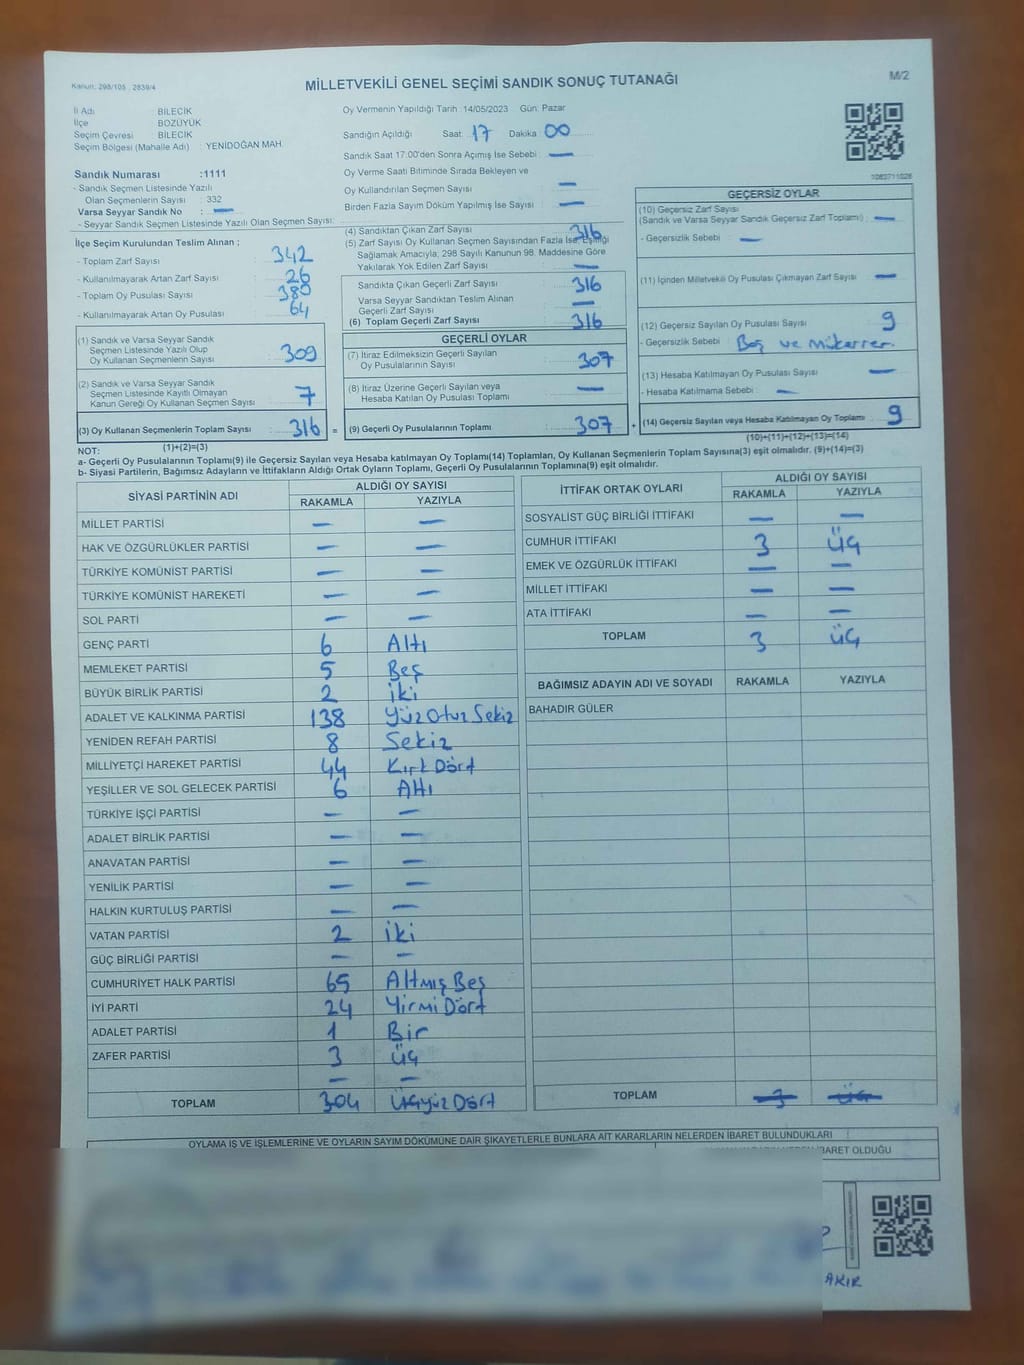 Kanun: 298/105 , 2839/4
MİLLETVEKİLİ GENEL SEÇİMİ SANDIK SONUÇ TUTANAĞI
M/2
İl Adı : BİLECİK
İlçe : BOZÜYÜK
Seçim Çevresi : BİLECİK
Seçim Bölgesi (Mahalle Adı) : YENİDOĞAN MAH.
Oy Vermenin Yapıldığı Tarih :14/05/2023 Gün: Pazar
Sandığın Açıldığı Saat: 17 Dakika 00
Sandık Saat 17:00'den Sonra Açımış İse Sebebi : —
Oy Verme Saati Bitiminde Sırada Bekleyen ve
Oy Kullandırılan Seçmen Sayısı —
Birden Fazla Sayım Döküm Yapılmış İse Sayısı : —
1083711026
Sandık Numarası :1111
- Sandık Seçmen Listesinde Yazılı
Olan Seçmenlerin Sayısı : 332
Varsa Seyyar Sandık No : —
- Seyyar Sandık Seçmen Listesinde Yazılı Olan Seçmen Sayısı:
İlçe Seçim Kurulundan Teslim Alınan ;
- Toplam Zarf Sayısı : 342
- Kullanılmayarak Artan Zarf Sayısı : 26
- Toplam Oy Pusulası Sayısı : 380
- Kullanılmayarak Artan Oy Pusulası : 64
(1) Sandık ve Varsa Seyyar Sandık
Seçmen Listesinde Yazılı Olup
Oy Kullanan Seçmenlerin Sayısı : 309
(2) Sandık ve Varsa Seyyar Sandık
Seçmen Listesinde Kayıtlı Olmayan
Kanun Gereği Oy Kullanan Seçmen Sayısı : 7
(3) Oy Kullanan Seçmenlerin Toplam Sayısı : 316 =
(4) Sandıktan Çıkan Zarf Sayısı : 316
(5) Zarf Sayısı Oy Kullanan Seçmen Sayısından Fazla İse, Eşitliği
Sağlamak Amacıyla, 298 Sayılı Kanunun 98. Maddesine Göre
Yakılarak Yok Edilen Zarf Sayısı : —
Sandıkta Çıkan Geçerli Zarf Sayısı : 316
Varsa Seyyar Sandıktan Teslim Alınan
Geçerli Zarf Sayısı : —
(6) Toplam Geçerli Zarf Sayısı : 316
GEÇERLİ OYLAR
(7) İtiraz Edilmeksizin Geçerli Sayılan
Oy Pusulalarının Sayısı : 307
(8) İtiraz Üzerine Geçerli Sayılan veya
Hesaba Katılan Oy Pusulası Toplamı : —
(9) Geçerli Oy Pusulalarının Toplamı : 307 +
GEÇERSİZ OYLAR
(10) Geçersiz Zarf Sayısı
(Sandık ve Varsa Seyyar Sandık Geçersiz Zarf Toplamı) : —
- Geçersizlik Sebebi : —
(11) İçinden Milletvekili Oy Pusulası Çıkmayan Zarf Sayısı : —
(12) Geçersiz Sayılan Oy Pusulası Sayısı : 9
- Geçersizlik Sebebi : Boş ve Mükerrer.
(13) Hesaba Katılmayan Oy Pusulası Sayısı : —
- Hesaba Katılmama Sebebi : —
(14) Geçersiz Sayılan veya Hesaba Katılmayan Oy Toplamı : 9
(1)+(2)=(3)
(10)+(11)+(12)+(13)=(14)
NOT:
a- Geçerli Oy Pusulalarının Toplamı(9) ile Geçersiz Sayılan veya Hesaba katılmayan Oy Toplamı(14) Toplamları, Oy Kullanan Seçmenlerin Toplam Sayısına(3) eşit olmalıdır. (9)+(14)=(3)
b- Siyasi Partilerin, Bağımsız Adayların ve İttifakların Aldığı Ortak Oyların Toplamı, Geçerli Oy Pusulalarının Toplamına(9) eşit olmalıdır.
SİYASİ PARTİNİN ADI ALDIĞI OY SAYISI
RAKAMLA YAZIYLA
MİLLET PARTİSİ — —
HAK VE ÖZGÜRLÜKLER PARTİSİ — —
TÜRKİYE KOMÜNİST PARTİSİ — —
TÜRKİYE KOMÜNİST HAREKETİ — —
SOL PARTİ — —
GENÇ PARTİ 6 Altı
MEMLEKET PARTİSİ 5 Beş
BÜYÜK BİRLİK PARTİSİ 2 iki
ADALET VE KALKINMA PARTİSİ 138 Yüz Otuz Sekiz
YENİDEN REFAH PARTİSİ 8 Sekiz
MİLLİYETÇİ HAREKET PARTİSİ 44 Kırk Dört
YEŞİLLER VE SOL GELECEK PARTİSİ 6 Altı
TÜRKİYE İŞÇİ PARTİSİ — —
ADALET BİRLİK PARTİSİ — —
ANAVATAN PARTİSİ — —
YENİLİK PARTİSİ — —
HALKIN KURTULUŞ PARTİSİ — —
VATAN PARTİSİ 2 iki
GÜÇ BİRLİĞİ PARTİSİ — —
CUMHURİYET HALK PARTİSİ 65 Altmış Beş
İYİ PARTİ 24 Yirmi Dört
ADALET PARTİSİ 1 Bir
ZAFER PARTİSİ 3 Üç
— —
TOPLAM 304 Üçyüz Dört
İTTİFAK ORTAK OYLARI ALDIĞI OY SAYISI
RAKAMLA YAZIYLA
SOSYALİST GÜÇ BİRLİĞİ İTTİFAKI — —
CUMHUR İTTİFAKI 3 Üç
EMEK VE ÖZGÜRLÜK İTTİFAKI — —
MİLLET İTTİFAKI — —
ATA İTTİFAKI — —
TOPLAM 3 Üç
BAĞIMSIZ ADAYIN ADI VE SOYADI RAKAMLA YAZIYLA
BAHADIR GÜLER
TOPLAM 3 Üç
OYLAMA İŞ VE İŞLEMLERİNE VE OYLARIN SAYIM DÖKÜMÜNE DAİR ŞİKAYETLERLE BUNLARA AİT KARARLARIN NELERDEN İBARET BULUNDUKLARI
İBARET OLDUĞU
AKIR